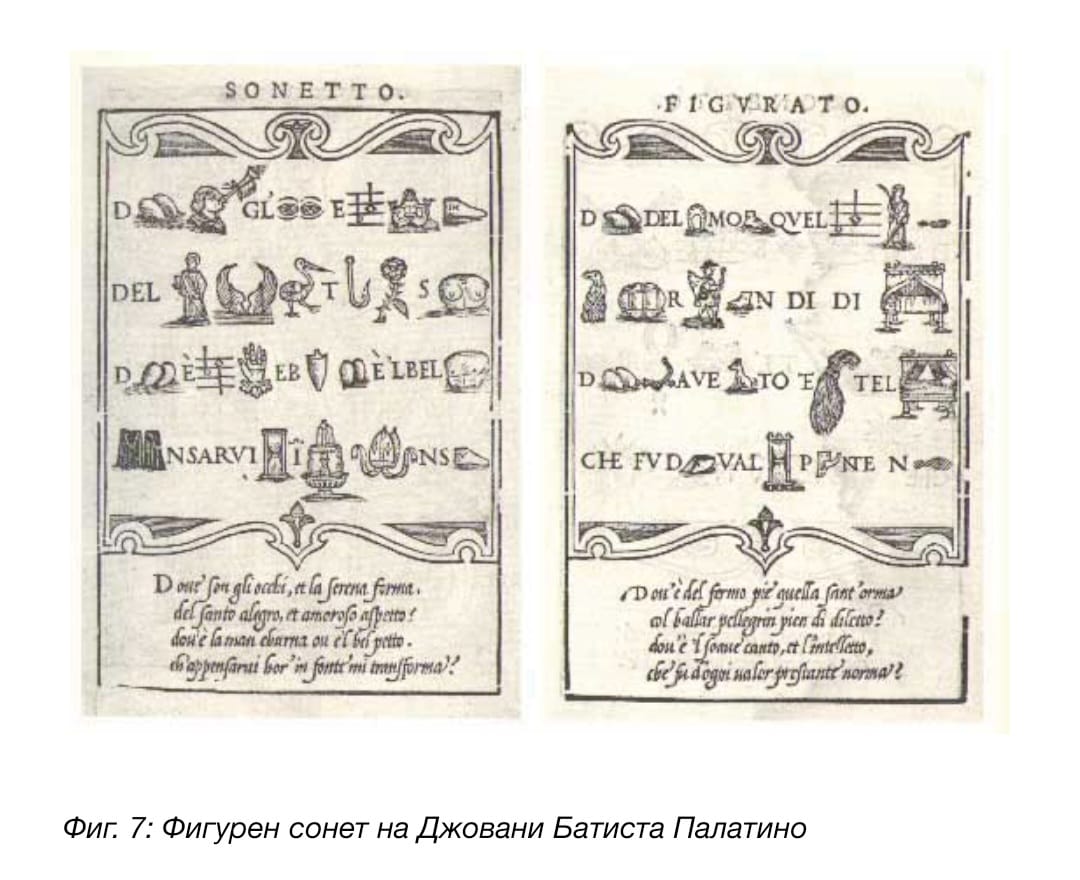 SONETTO.
D GL' E
DEL T S
D È EB È LBEL
NSARVI I NS
Doue' son gli occhi, et la serena forma.
del santo alegro, et amoroso aspetto?
dou'è la man eburna ou'e'l bel petto.
ch'appensarui hor' in fonte' mi transforma'?
.FIGVRATO.
D DEL MO QVEL
R N DI DI
D AVE TO E TEL
CHE FV D VAL P NTE N
Dou'è del fermo pie' quella sant'orma'
col ballar pellegrin pien di diletto?
dou'è 'l soaue' canto, et l'intelletto,
che' fu d'ogni ualor prestante' norma'?
Фиг. 7: Фигурен сонет на Джовани Батиста Палатино